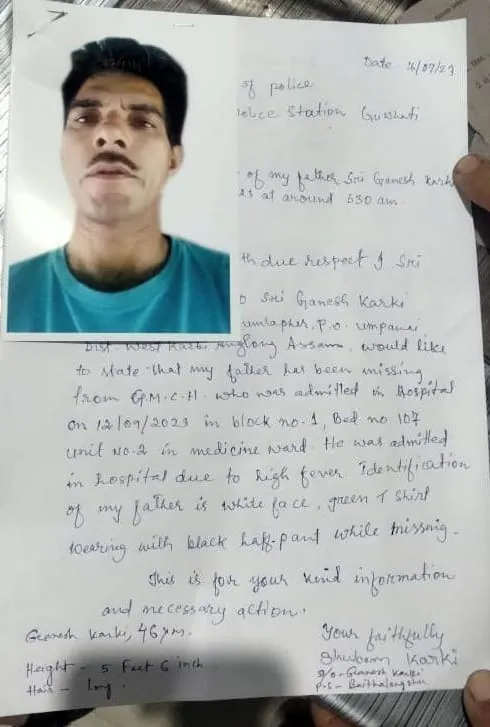 Date 16/09/23
of police
Police Station Guwhati
of my father Sri Ganesh Karki
23 at around 530 am.
th due respect I Sri
Sri Ganesh Karki
umlapher, P.O. umpanai
Dist. West Karbi Anglong Assam, would like
to state that my father has been missing
from G.M.C.H. who was admitted in Hospital
on 12/09/2023 in block no. 1, Bed no 107
unit No. 2 in medicine ward. He was admitted
in hospital due to high fever Identification
of my father is white face, green T shirt
wearing with black haff-pant while missnig.
This is for your kind information
and necessary action.
Geanesh Karki, 46 yrs.
Height - 5 Feet 6 inch.
Hair - Long.
Your faithfully
Shubam Karki
S/o- Geanesh Karki
P.S - Baithalangshu